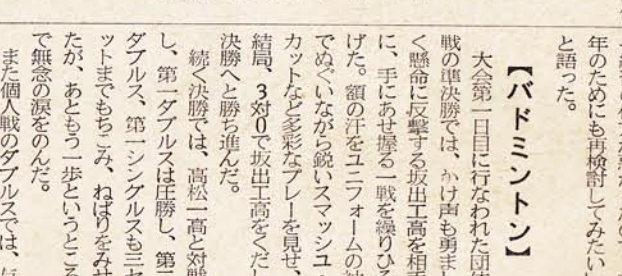 年のためにも再検討してみたい
と語った。
【バドミントン】
大会第一日目に行なわれた団体
戦の準決勝では、かけ声も勇まし
く懸命に反撃する坂出工高を相手
に、手にあせ握る一戦を繰りひろ
げた。額の汗をユニフォームの袖
でぬぐいながら鋭いスマッシュ
カットなど多彩なプレーを見せ、
結局、3対0で坂出工高をくだし
決勝へと勝ち進んだ。
続く決勝では、高松一高と対戦
し、第一ダブルスは圧勝し、第二
ダブルス、第一シングルスも三セ
ットまでもちこみ、ねばりをみせ
たが、あともう一歩というところ
で無念の涙をのんだ。
また個人戦のダブルスでは、